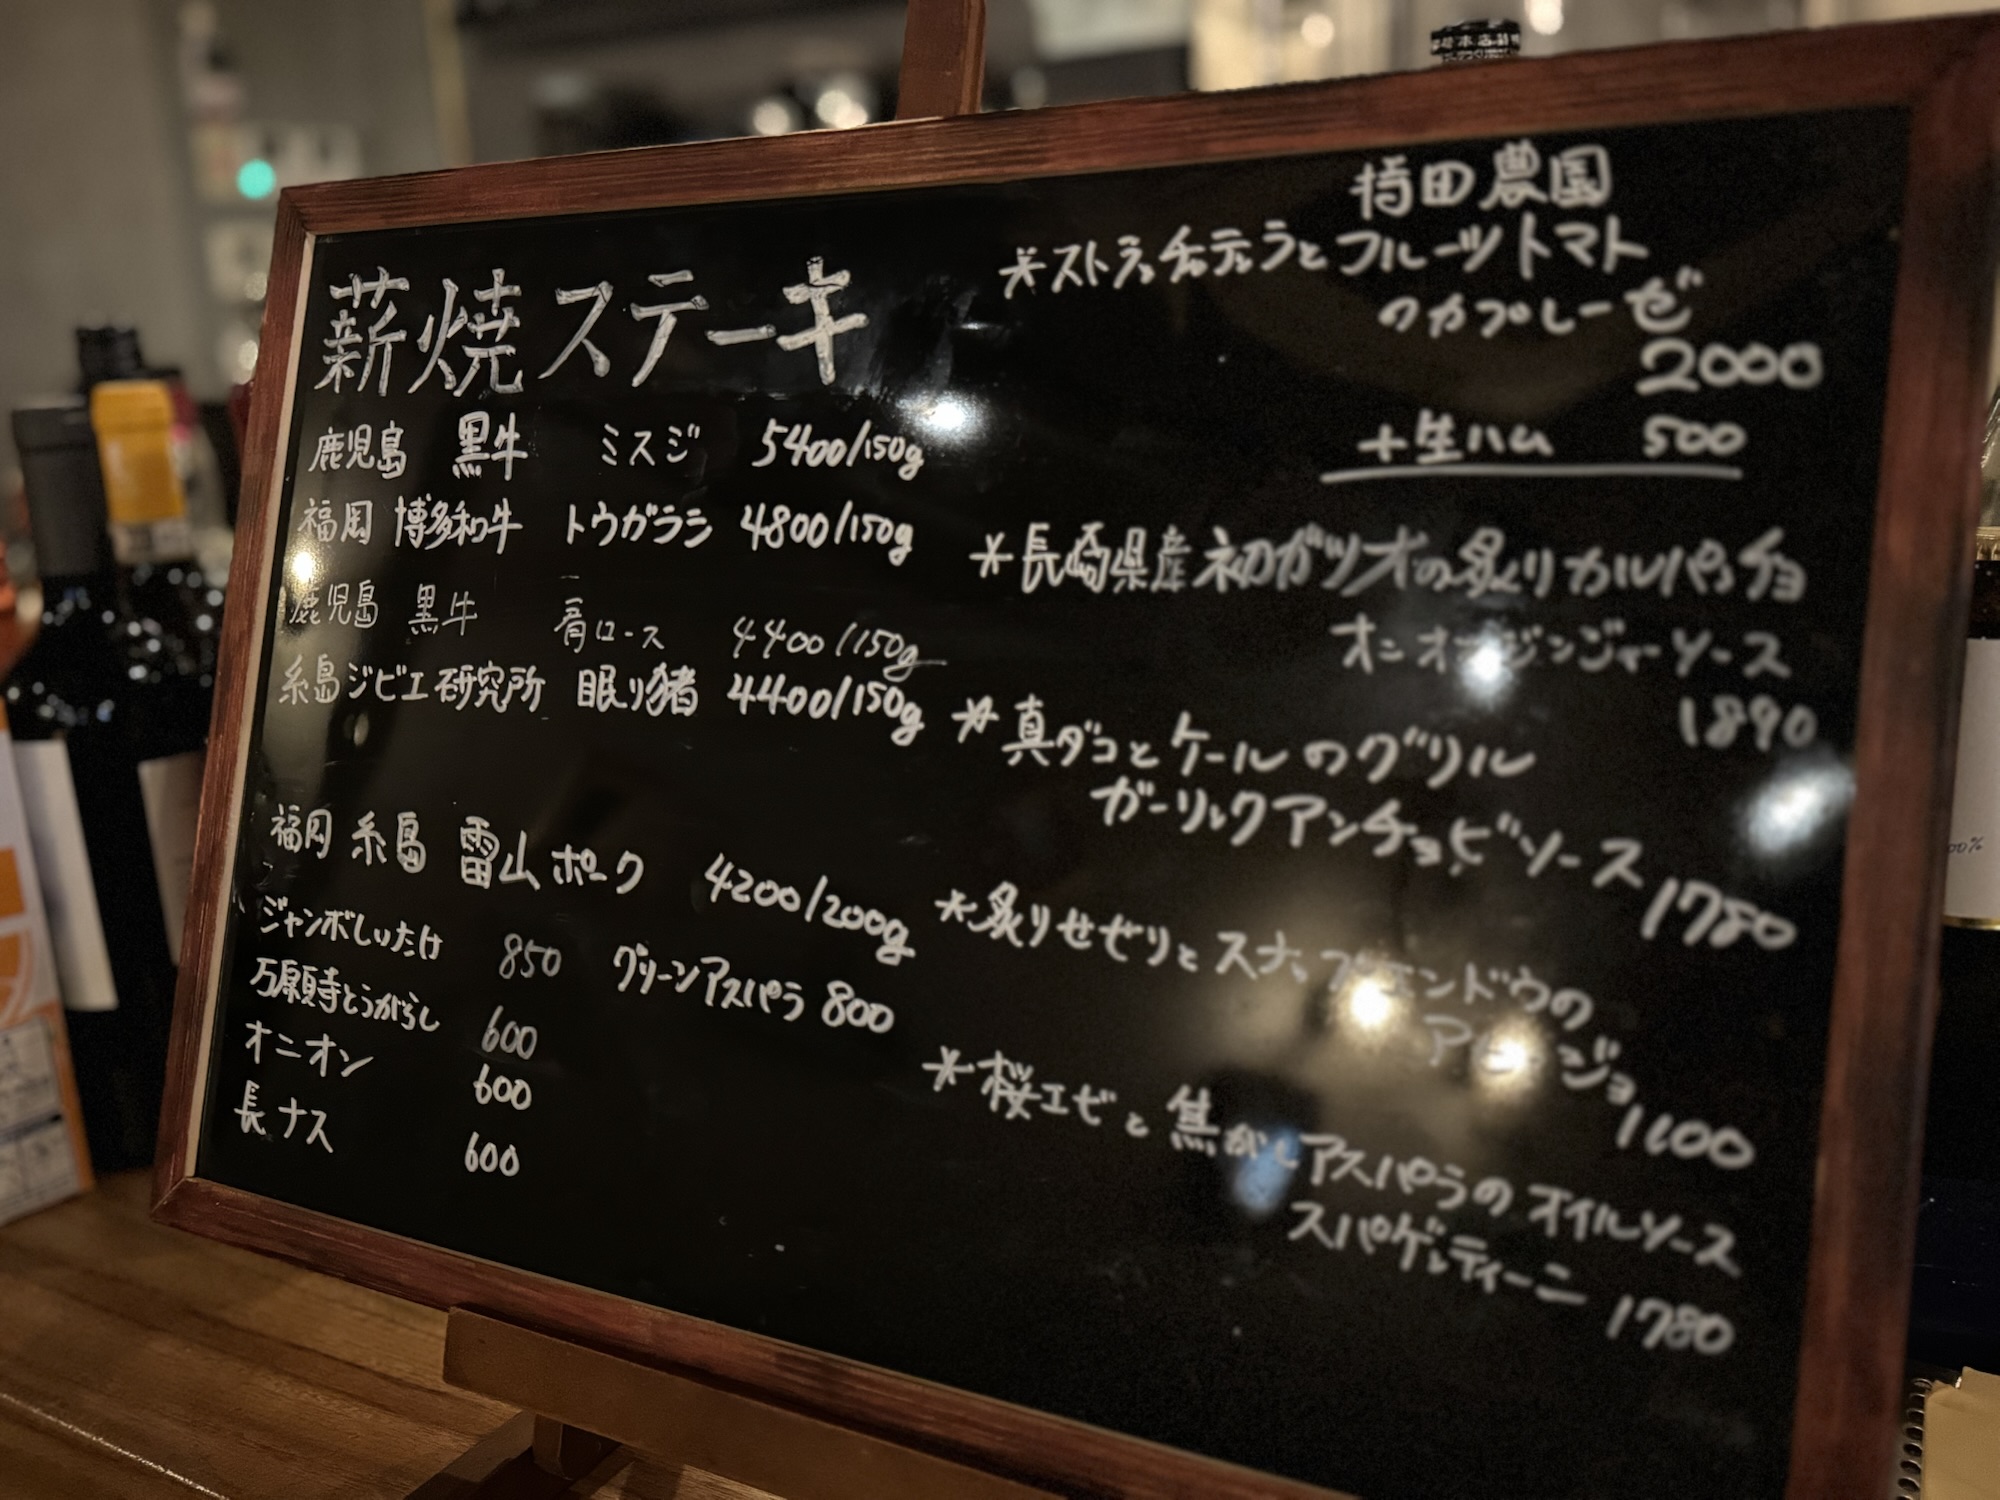 薪焼ステーキ
鹿児島 黒牛 ミスジ 5400/150g
福岡 博多和牛 トウガラシ 4800/150g
鹿児島 黒牛 肩ロース 4400/150g
糸島ジビエ研究所 眠り猪 4400/150g
福岡 糸島 雷山ポーク 4200/200g
ジャンボしいたけ 850 グリーンアスパラ 800
万願寺とうがらし 600
オニオン 600
長ナス 600
持田農園
*ストラッチャテッラとフルーツトマト
のカプレーゼ
2000
+生ハム 500
*長崎県産初ガツオの炙りカルパッチョ
オニオンジンジャーソース
1890
*真ダコとケールのグリル
ガーリックアンチョビソース
1780
*炙りせぜりとスナップエンドウの
アヒージョ
1600
*桜エビと焦がしアスパラのオイルソース
スパゲッティーニ 1780
00%